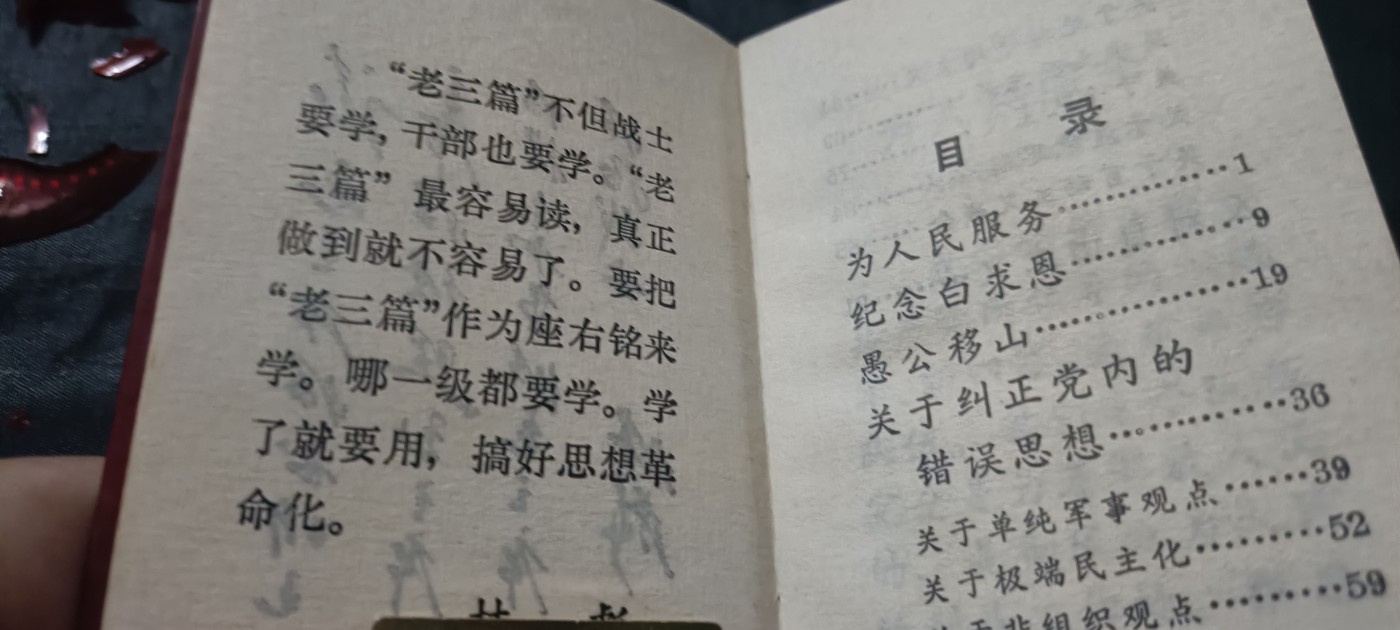 “老三篇”不但战士
要学，干部也要学。“老
三篇”最容易读，真正
做到就不容易了。要把
“老三篇”作为座右铭来
学。哪一级都要学。学
了就要用，搞好思想革
命化。
目 录
为人民服务…………1
纪念白求恩…………9
愚公移山……………19
关于纠正党内的
错误思想…………36
关于单纯军事观点……39
关于极端民主化………52
关于非组织观点………59